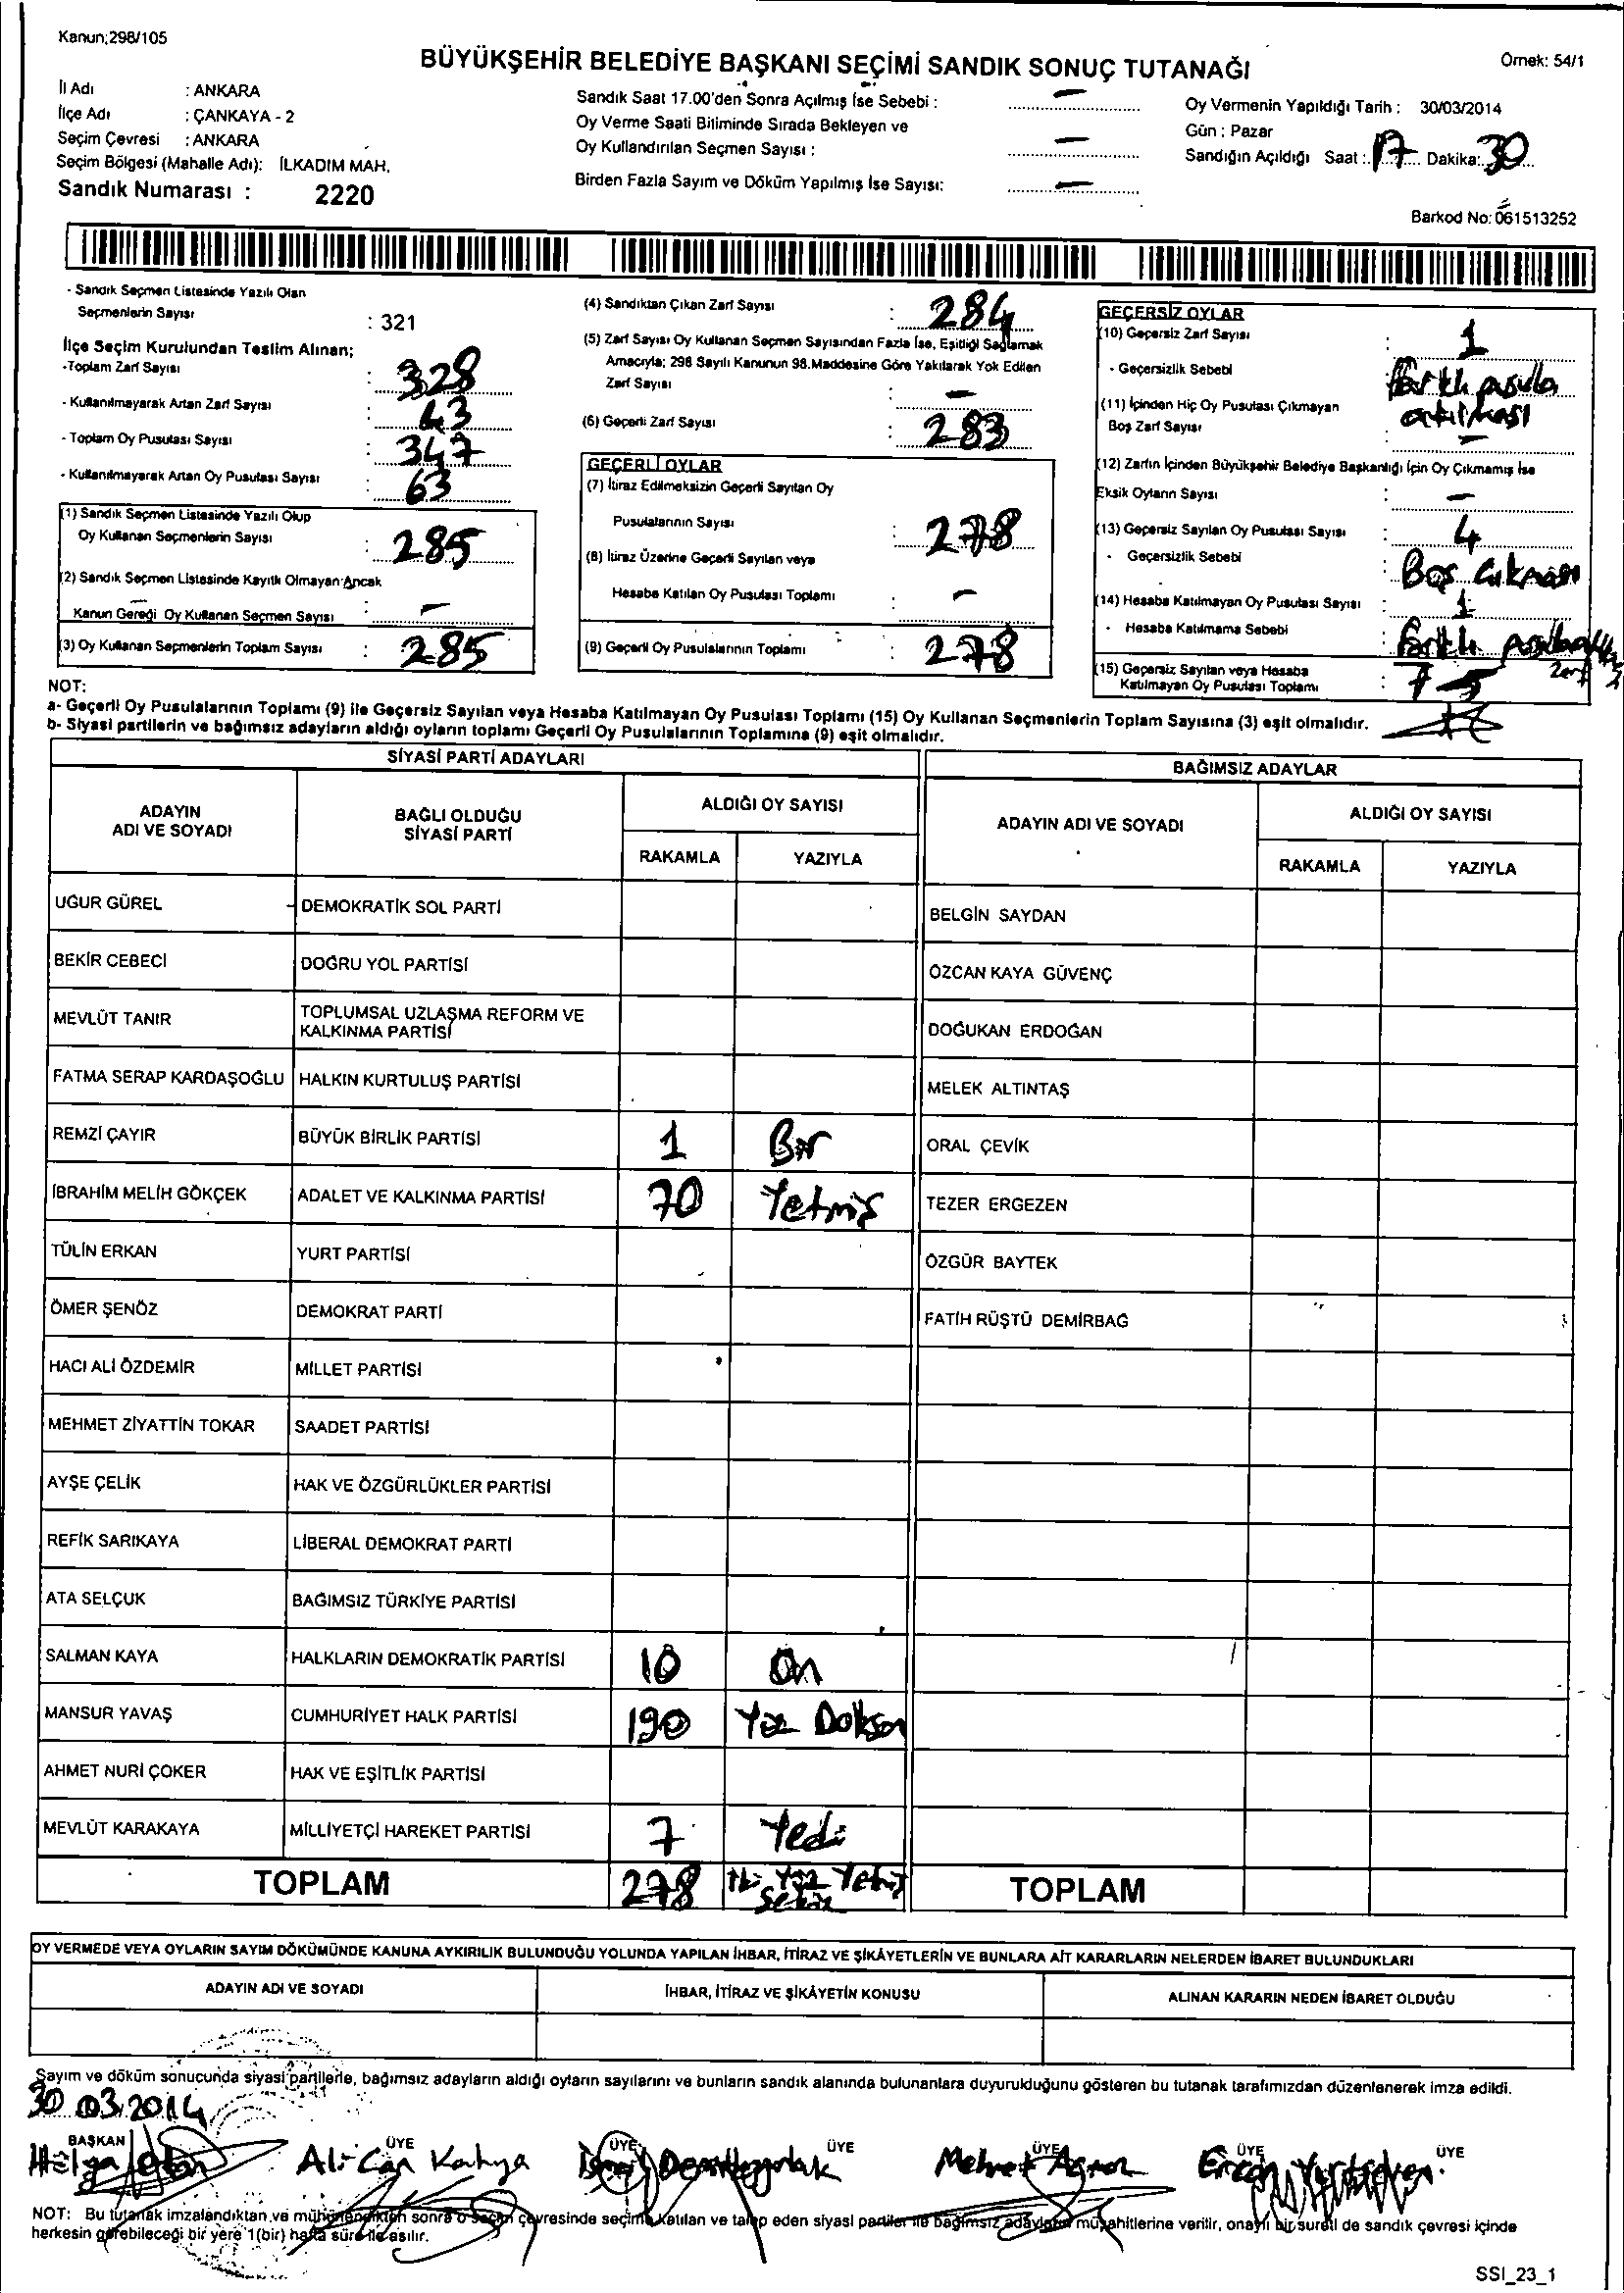 Kanun;298/105
BÜYÜKŞEHİR BELEDİYE BAŞKANI SEÇİMİ SANDIK SONUÇ TUTANAĞI
Örnek: 54/1
İl Adı : ANKARA
İlçe Adı : ÇANKAYA - 2
Seçim Çevresi : ANKARA
Seçim Bölgesi (Mahalle Adı): İLKADIM MAH.
Sandık Numarası : 2220
Sandık Saat 17.00'den Sonra Açılmış İse Sebebi : —
Oy Verme Saati Bitiminde Sırada Bekleyen ve
Oy Kullandırılan Seçmen Sayısı : —
Birden Fazla Sayım ve Döküm Yapılmış İse Sayısı: —
Oy Vermenin Yapıldığı Tarih : 30/03/2014
Gün : Pazar
Sandığın Açıldığı Saat : 17 Dakika: 30
Barkod No: 061513252
- Sandık Seçmen Listesinde Yazılı Olan
Seçmenlerin Sayısı : 321
İlçe Seçim Kurulundan Teslim Alınan;
-Toplam Zarf Sayısı : 328
- Kullanılmayarak Artan Zarf Sayısı : 43
- Toplam Oy Pusulası Sayısı : 347
- Kullanılmayarak Artan Oy Pusulası Sayısı : 63
(1) Sandık Seçmen Listesinde Yazılı Olup
Oy Kullanan Seçmenlerin Sayısı : 285
(2) Sandık Seçmen Listesinde Kayıtlı Olmayan Ancak
Kanun Gereği Oy Kullanan Seçmen Sayısı : —
(3) Oy Kullanan Seçmenlerin Toplam Sayısı : 285
(4) Sandıktan Çıkan Zarf Sayısı : 284
(5) Zarf Sayısı Oy Kullanan Seçmen Sayısından Fazla İse, Eşitliği Sağlamak
Amacıyla; 298 Sayılı Kanunun 98.Maddesine Göre Yakılarak Yok Edilen
Zarf Sayısı : —
(6) Geçerli Zarf Sayısı : 283
GEÇERLİ OYLAR
(7) İtiraz Edilmeksizin Geçerli Sayılan Oy
Pusulalarının Sayısı : 278
(8) İtiraz Üzerine Geçerli Sayılan veya
Hesaba Katılan Oy Pusulası Toplamı : —
(9) Geçerli Oy Pusulalarının Toplamı : 278
GEÇERSİZ OYLAR
(10) Geçersiz Zarf Sayısı : 1
- Geçersizlik Sebebi : farklı pusula
atılması
(11) İçinden Hiç Oy Pusulası Çıkmayan
Boş Zarf Sayısı : —
(12) Zarfın İçinden Büyükşehir Belediye Başkanlığı İçin Oy Çıkmamış İse
Eksik Oyların Sayısı : —
(13) Geçersiz Sayılan Oy Pusulası Sayısı : 4
- Geçersizlik Sebebi : Boş Çıkması
(14) Hesaba Katılmayan Oy Pusulası Sayısı : 1
- Hesaba Katılmama Sebebi : farklı
(15) Geçersiz Sayılan veya Hesaba
Katılmayan Oy Pusulası Toplamı : 7
NOT:
a- Geçerli Oy Pusulalarının Toplamı (9) ile Geçersiz Sayılan veya Hesaba Katılmayan Oy Pusulası Toplamı (15) Oy Kullanan Seçmenlerin Toplam Sayısına (3) eşit olmalıdır.
b- Siyasi partilerin ve bağımsız adayların aldığı oyların toplamı Geçerli Oy Pusulalarının Toplamına (9) eşit olmalıdır.
SİYASİ PARTİ ADAYLARI
ADAYIN ADI VE SOYADI
BAĞLI OLDUĞU SİYASİ PARTİ
ALDIĞI OY SAYISI
RAKAMLA YAZIYLA
UĞUR GÜREL DEMOKRATİK SOL PARTİ
BEKİR CEBECİ DOĞRU YOL PARTİSİ
MEVLÜT TANIR TOPLUMSAL UZLAŞMA REFORM VE
KALKINMA PARTİSİ
FATMA SERAP KARDAŞOĞLU HALKIN KURTULUŞ PARTİSİ
REMZİ ÇAYIR BÜYÜK BİRLİK PARTİSİ 1 Bir
İBRAHİM MELİH GÖKÇEK ADALET VE KALKINMA PARTİSİ 70 Yetmiş
TÜLİN ERKAN YURT PARTİSİ
ÖMER ŞENÖZ DEMOKRAT PARTİ
HACI ALİ ÖZDEMİR MİLLET PARTİSİ
MEHMET ZİYATTİN TOKAR SAADET PARTİSİ
AYŞE ÇELİK HAK VE ÖZGÜRLÜKLER PARTİSİ
REFİK SARIKAYA LİBERAL DEMOKRAT PARTİ
ATA SELÇUK BAĞIMSIZ TÜRKİYE PARTİSİ
SALMAN KAYA HALKLARIN DEMOKRATİK PARTİSİ 10 On
MANSUR YAVAŞ CUMHURİYET HALK PARTİSİ 190 Yüz Doksan
AHMET NURİ ÇOKER HAK VE EŞİTLİK PARTİSİ
MEVLÜT KARAKAYA MİLLİYETÇİ HAREKET PARTİSİ 7 Yedi
TOPLAM 278 İki Yüz Yetmiş
Sekiz
BAĞIMSIZ ADAYLAR
ADAYIN ADI VE SOYADI
ALDIĞI OY SAYISI
RAKAMLA YAZIYLA
BELGİN SAYDAN
ÖZCAN KAYA GÜVENÇ
DOĞUKAN ERDOĞAN
MELEK ALTINTAŞ
ORAL ÇEVİK
TEZER ERGEZEN
ÖZGÜR BAYTEK
FATİH RÜŞTÜ DEMİRBAĞ
TOPLAM
OY VERMEDE VEYA OYLARIN SAYIM DÖKÜMÜNDE KANUNA AYKIRILIK BULUNDUĞU YOLUNDA YAPILAN İHBAR, İTİRAZ VE ŞİKÂYETLERİN VE BUNLARA AİT KARARLARIN NELERDEN İBARET BULUNDUKLARI
ADAYIN ADI VE SOYADI
İHBAR, İTİRAZ VE ŞİKÂYETİN KONUSU
ALINAN KARARIN NEDEN İBARET OLDUĞU
Sayım ve döküm sonucunda siyasi partilerle, bağımsız adayların aldığı oyların sayılarını ve bunların sandık alanında bulunanlara duyurulduğunu gösteren bu tutanak tarafımızdan düzenlenerek imza edildi.
30 03.2014
BAŞKAN ÜYE ÜYE ÜYE ÜYE ÜYE ÜYE
Ali Can Kahya
NOT: Bu tutanak imzalandıktan ve mühürlendikten sonra o seçim çevresinde seçime katılan ve talep eden siyasi partiler ile bağımsız adayların müşahitlerine verilir, onaylı bir sureti de sandık çevresi içinde
herkesin görebileceği bir yere 1(bir) hafta süre ile asılır.
SSI_23_1